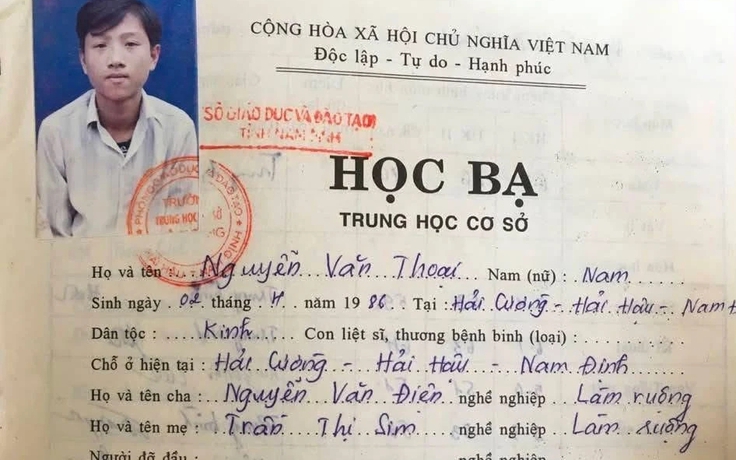 CỘNG HÒA XÃ HỘI CHỦ NGHĨA VIỆT NAM
Độc lập - Tự do - Hạnh phúc
SỞ GIÁO DỤC VÀ ĐÀO TẠO
TỈNH NAM ĐỊNH
HỌC BẠ
TRUNG HỌC CƠ SỞ
PHÒNG GIÁO DỤC ĐÀO TẠO
TRƯỜNG
TRUNG HỌC
Họ và tên Nguyễn Văn Thoại Nam (nữ) : Nam
Sinh ngày 02 tháng năm 1986 Tại : Hải Cường - Hải Hậu - Nam Đ
Dân tộc : Kinh Con liệt sĩ, thương bệnh binh (loại) :
Chỗ ở hiện tại : Hải Cường - Hải Hậu - Nam Định
Họ và tên cha : Nguyễn Văn Điện nghề nghiệp Làm ruộng
Họ và tên mẹ : Trần Thị Sim nghề nghiệp Làm ruộng
Người đỡ đầu :